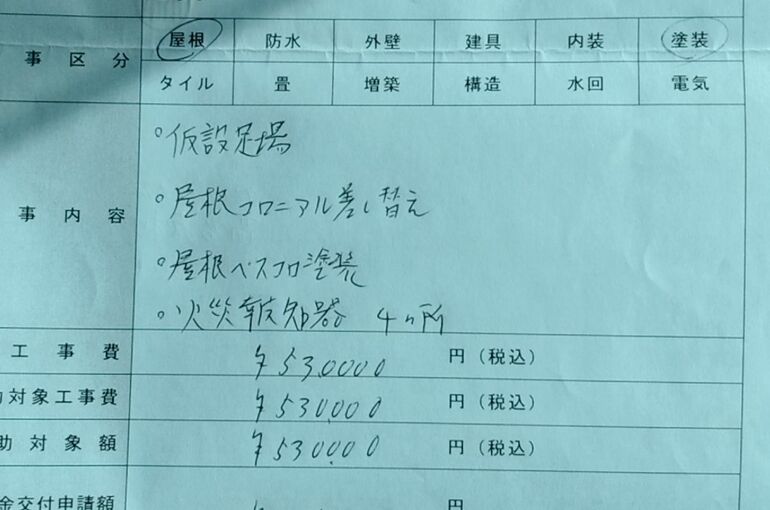 屋根 防水 外壁 建具 内装 塗装
事区分
タイル 畳 増築 構造 水回 電気
・仮設足場
・屋根コロニアル差し替え
事内容
・屋根ベスコロ塗装
・火災報知器 4ヶ所
工事費 ¥530,000 円(税込)
対象工事費 ¥530,000 円(税込)
助対象額 ¥530,000 円(税込)
金交付申請額 円